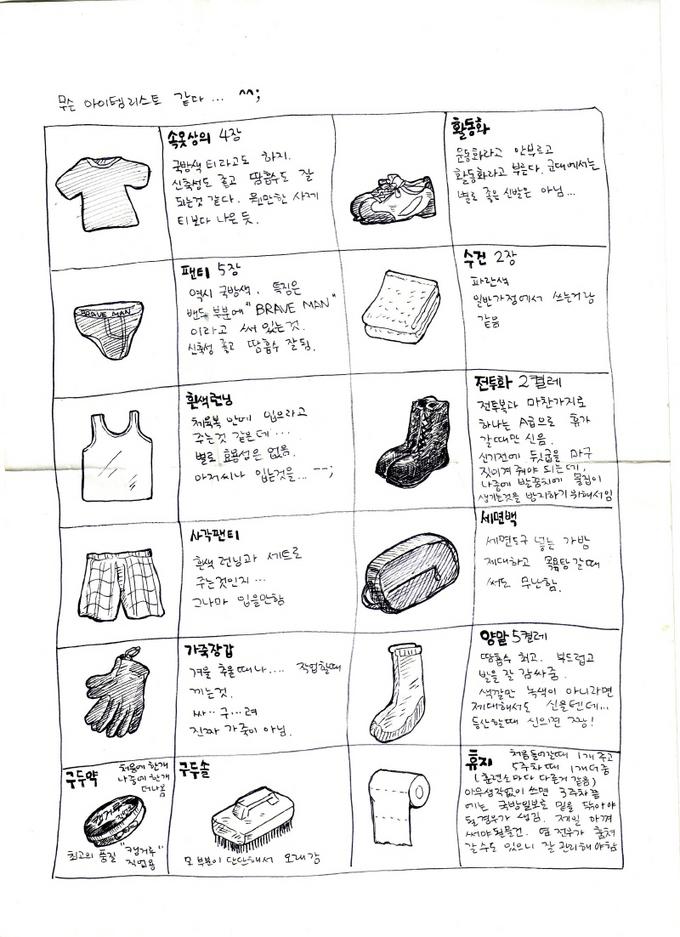 무슨 아이템리스트 같다... ^^;
속옷상의 4장
국방색 티라고도 하지.
신축성도 좋고 땀흡수도 잘
되는것 같다. 웬만한 사제
티보다 나은 듯.
활동화
운동화라고 안부르고
활동화라고 부른다. 군대에서는
별로 좋은 신발은 아님...
팬티 5장
역시 국방색. 특징은
밴드 부분에 "BRAVE MAN"
이라고 써 있는것.
신축성 좋고 땀흡수 잘됨.
BRAVE MAN
수건 2장
파란색
일반가정에서 쓰는거랑
같음
흰색런닝
체육복 안에 입으라고
주는것 같은데...
별로 효용성은 없음.
아저씨나 입는것을... ㅡㅡ;
전투화 2켤레
전투복과 마찬가지로
하나는 A급으로 휴가
갈때만 신음.
신기전에 뒷굽을 마구
짓이겨 줘야 되는데,
나중에 발뒤꿈치에 물집이
생기는것을 방지하기 위해서임
사각팬티
흰색 런닝과 세트로
주는것인지...
그나마 입을만함
세면백
세면도구 넣는 가방
제대하고 목욕탕 갈때
써도 무난함.
가죽장갑
겨울 추울때나.... 작업할때
끼는것.
싸··구··려
진짜 가죽이 아님.
양말 5켤레
땀흡수 최고. 부드럽고
발을 잘 감싸줌.
색깔만 녹색이 아니라면
제대해서도 신을텐데...
등산할때 신으면 짱!
구두약
처음에 한개
나중에 한개
더나옴
최고의 품질 "캥거루"
직접용
구두솔
모 부분이 단단해서 오래감
휴지
처음들어갈때 1개 주고
5주차때 1개더줌
(훈련소마다 다른거 같음)
아무생각없이 쓰면 3주차쯤
에는 국방일보로 밑을 닦아야
될 경우가 생김. 제일 아껴
써야 될물건. 옆 전우가 훔쳐
갈수도 있으니 잘 관리해야함